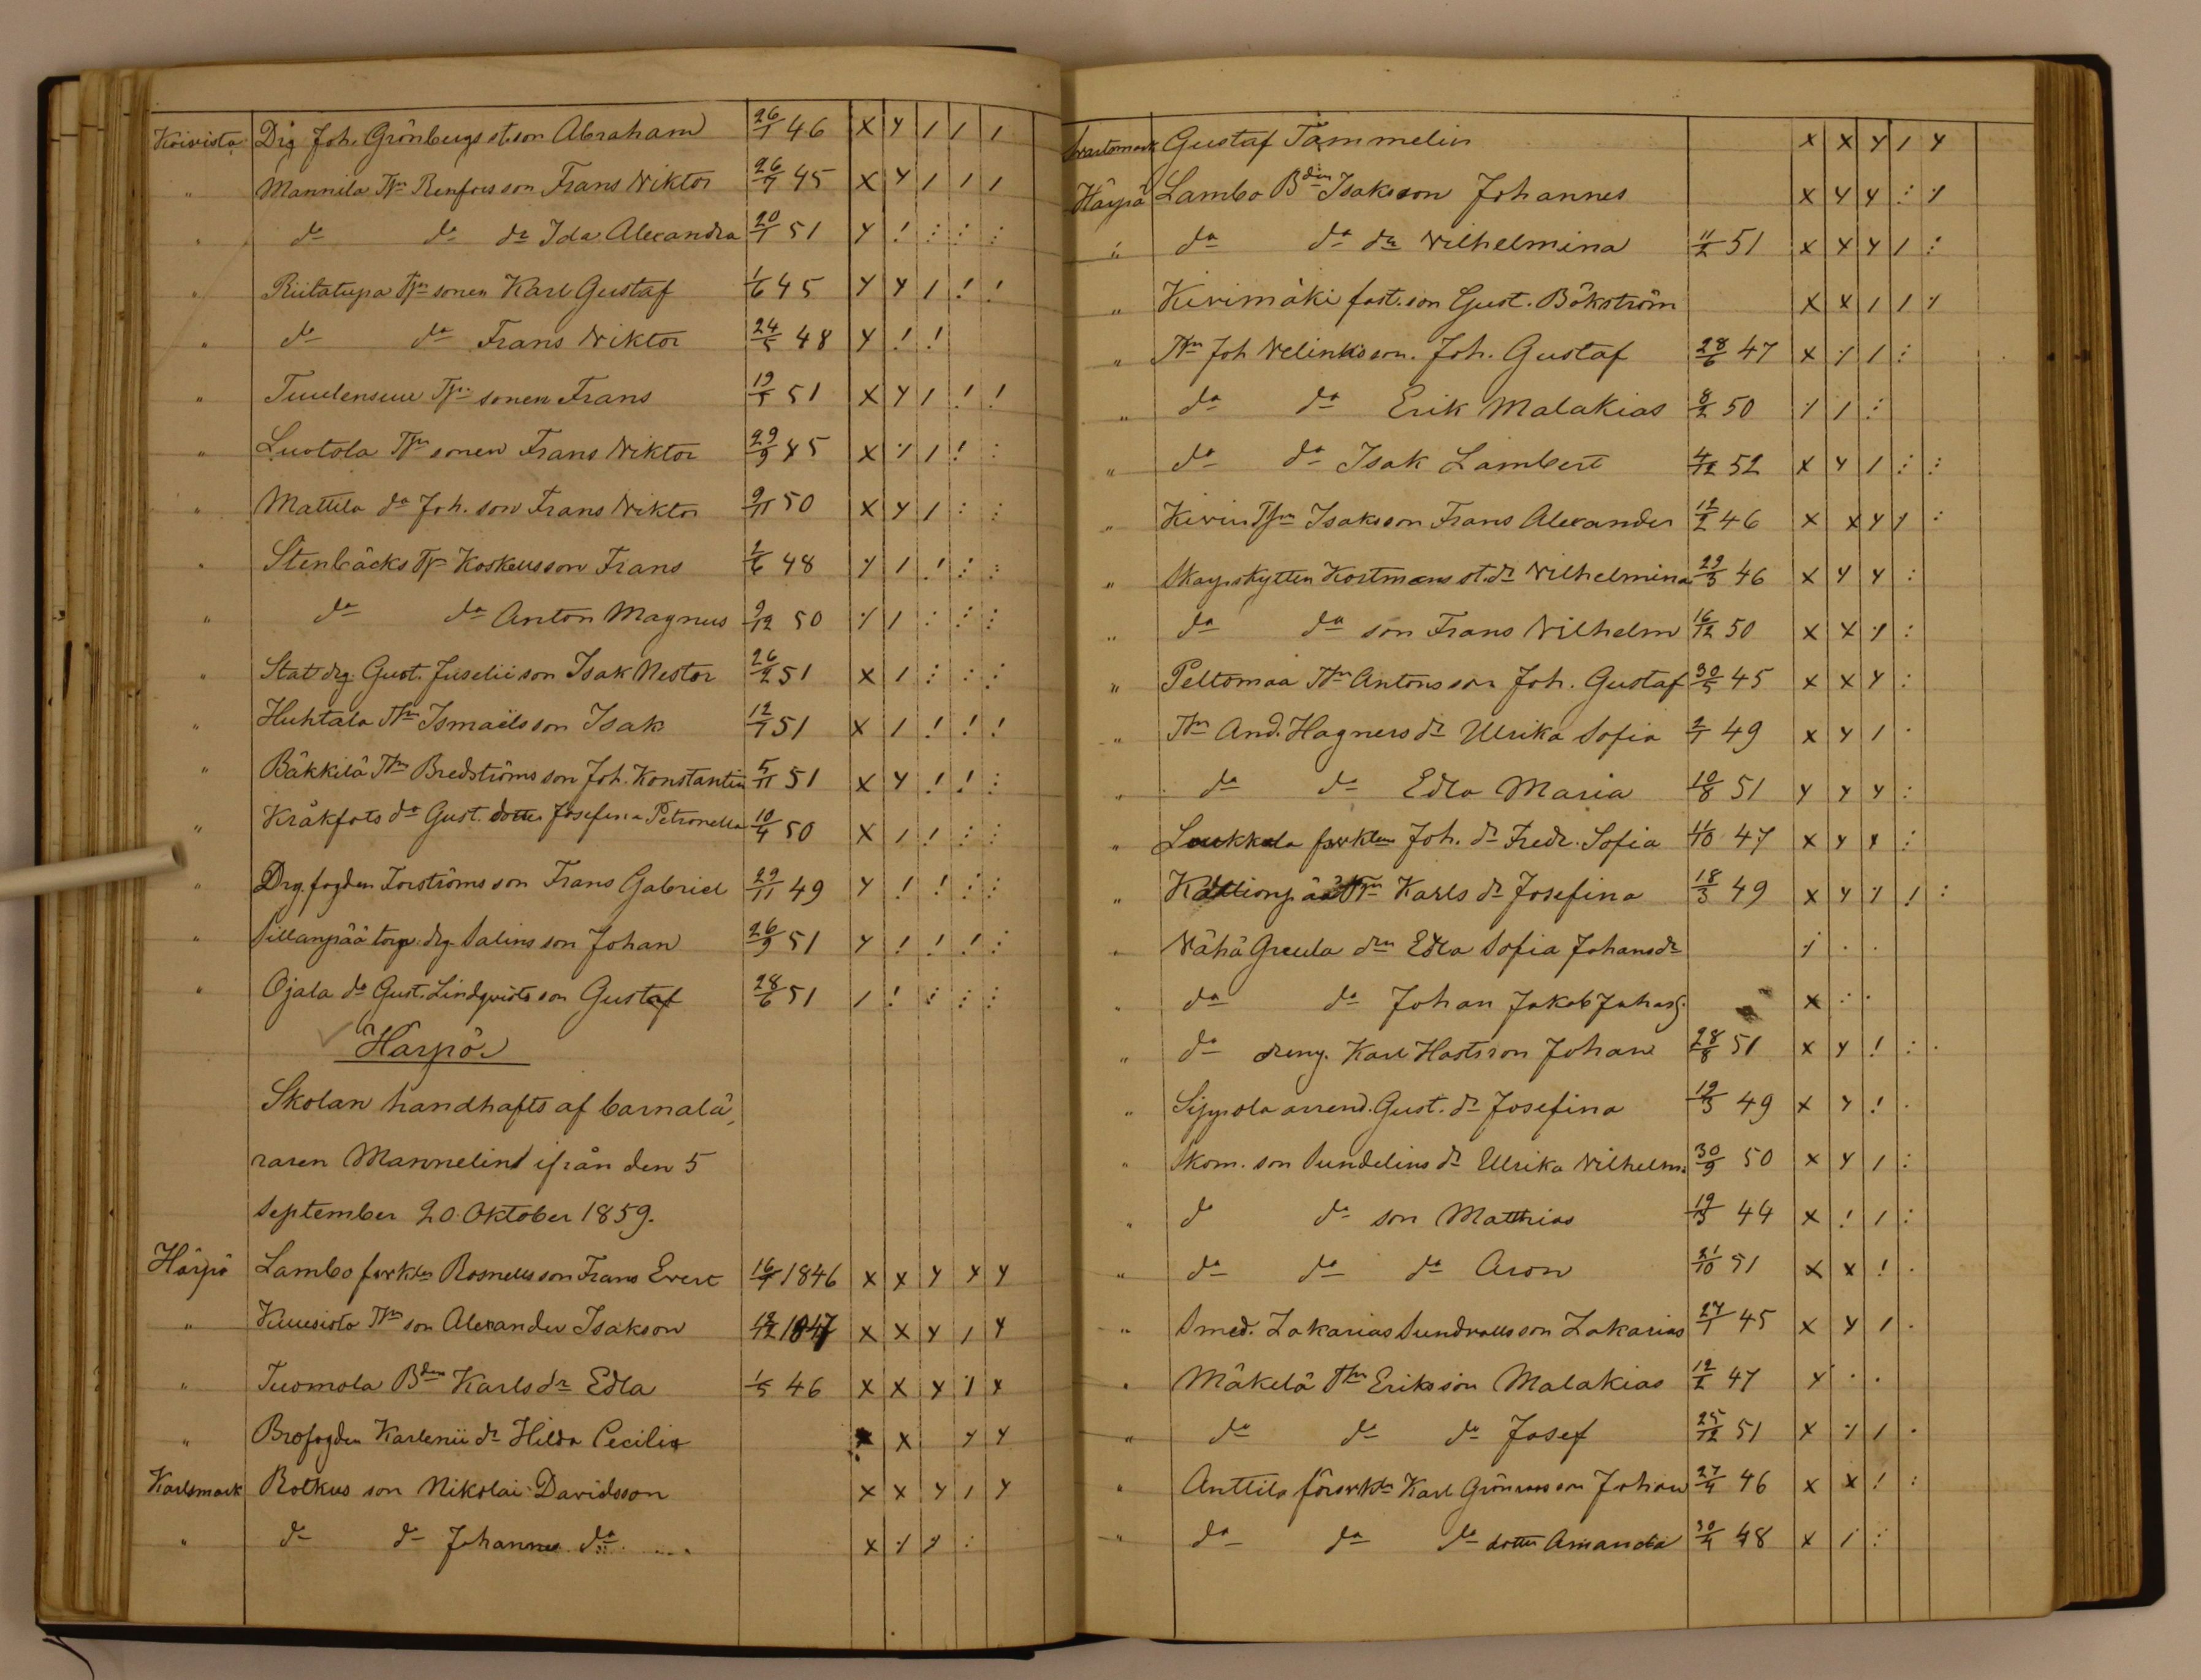 Koivisto Drg Joh. Grönbergs st.son Abraham 26/1 46 X Y / / /
" Mannila Tpr Renfors son Frans Viktor 26/7 45 X Y / / /
" do do dr Ida Alexandra 20/1 51 Y ! : : :
" Riitatupa Tpr sonen Karl Gustaf 1/6 45 Y Y / ! !
" do do Frans Viktor 24/5 48 Y ! !
" Tpr sonen Frans 19/5 51 X Y / ! !
" Luotola Tpr sonen Frans Viktor 29/9 45 X Y / ! :
" Mattila do Joh. son Frans Viktor 9/11 50 X Y / : :
" Stenbäcks Tpr Koskens son Frans 2/6 48 Y / ! : :
" do do Anton Magnus 9/12 50 Y / : : :
" Stat drg. Gust. Juselii son Isak Nestor 26/2 51 X / : : :
" Huhtala Tpr Ismaëls son Isak 12/7 51 X / ! ! !
" Bäkkilä Tpr Bredströms son Joh. Konstantin 5/11 51 X Y ! ! :
" Kråkfots do Gust. dotter Josefina Petronella 10/4 50 X / ! : :
" Drg. fogden Forströms son Frans Gabriel 29/11 49 Y ! ! : :
" Sillanpää torp. drg. Salins son Johan 26/9 51 Y ! ! ! :
" Ojala do Gust. Lindqvists son Gustaf 28/6 51 / ! : : :
Härpö
Skolan handhafts af barnalä-
raren Mannelin ifrån den 5
September 20 Oktober 1859.
Härpö Lambo forktn Rosnells son Frans Evert 16/7 1846 X X Y X Y
" Kuusisto Tpr son Alexander Isakson 19/12 1847 X X Y / Y
" Tuomola Bden Karls dr Edla 1/5 46 X X Y Y X
" Brofogden Karlenii dr Hilda Cecilia X X Y Y
Karlsmark Rotkus son Nikolai Davidsson X X Y / Y
" do do Johannes do X Y Y :
Gustaf Tammelin X X Y / Y
Härpö Lambo Bden Isaksson Johannes X Y Y : Y
" do do dr Vilhelmina 11/2 51 X X Y / :
" Kivimäki fost. son Gust. Bökström X X / / Y
" Tpr Joh Velinks son. Joh. Gustaf 28/6 47 X Y / :
" do do Erik Malakias 8/2 50 Y / :
" do do Isak Lambert 4/12 52 X Y / : :
" Tpr Isaks son Frans Alexander 12/2 46 X X Y Y :
" Skarpskytten Kortmans st.dr Vilhelmina 29/3 46 X Y Y :
" do do son Frans Vilhelm 16/12 50 X X Y :
" Peltomaa Tpr Antons son Joh. Gustaf 30/5 45 X X Y :
" Tpr And. Hagners dr Ulrika Sofia 2/7 49 X Y / .
" do do Edla Maria 10/8 51 Y Y Y :
" Loukkala forktns Joh. dr Fredr. Sofia 11/10 47 X Y X :
" Kallionpää Tpr Karls dr Josefina 18/3 49 X Y Y ! :
" Vähä Greula drn Edla Sofia Johansdr Y . .
" do do Johan Jakob X : .
" do dreng. Karl Hasts son Johan 28/8 51 X Y ! : .
" Sippola arrend. Gust. dr Josefina 19/3 49 X Y ! .
" Skom. son Sundelins dr Ulrika Vilhelm. 30/9 50 X Y / :
" do do son Matthias 19/3 44 X ! / :
" do do do Aron 21/10 51 X X ! .
" Smed. Zakarias Sundvalls son Zakarias 27/1 45 X Y / .
" Mäkelä Tpr Eriks son Malakias 12/2 47 Y . .
" do do do Josef 25/12 51 X Y / .
" Anttila försvktn Karl Grönroos son Johan 27/4 46 X X ! :
" do do do dotter Amanda 30/4 48 X / :